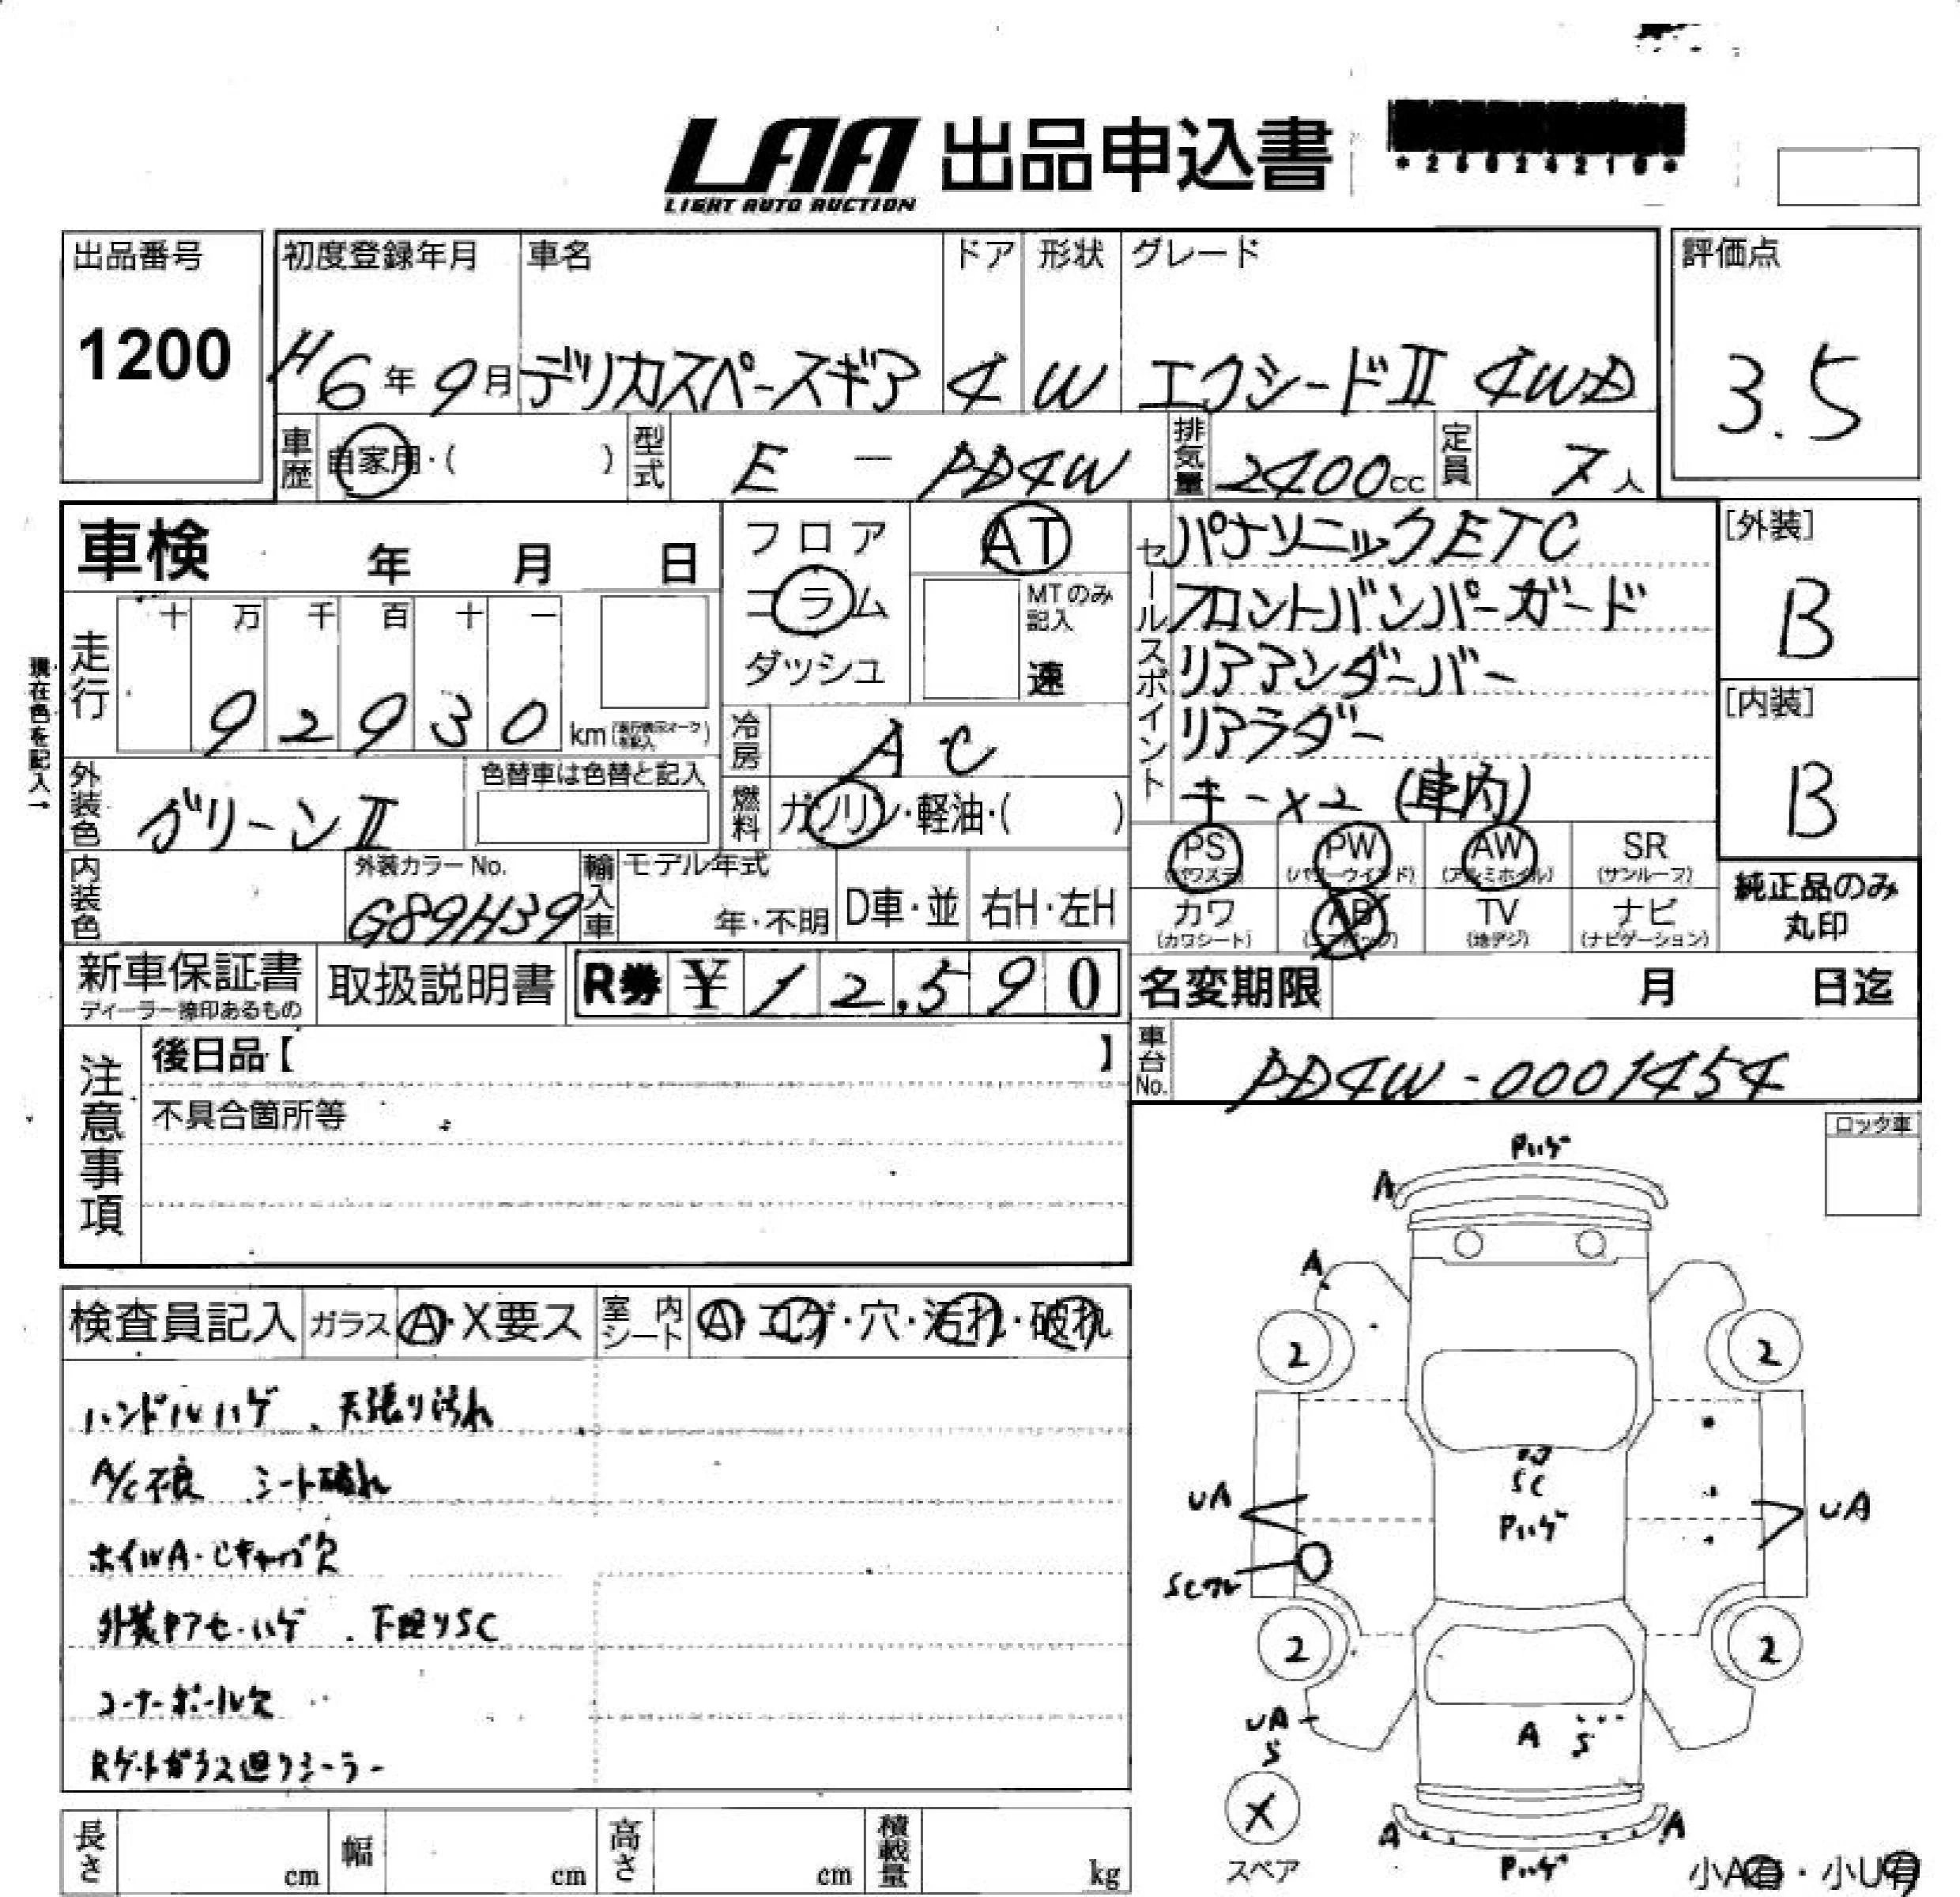 LAA 出品申込書
LIGHT AUTO AUCTION
出品番号
1200
初度登録年月
H6年9月
車名
デリカスペースギア
ドア
4
形状
W
グレード
エクシードⅡ 4WD
評価点
3.5
車歴 自家用・( )
型式 E - PD4W
排気量 2400cc
定員 7人
車検 年 月 日
フロア
コラム
ダッシュ
AT
MTのみ記入
速
セールスポイント
パナソニックETC
フロントバンパーガード
リアアンダーバー
リアラダー
キー×2 (車内)
[外装]
B
[内装]
B
現在色を記入→
走行
十 万 千 百 十 一
9 2 9 3 0 km
冷房 AC
燃料 ガソリン・軽油・( )
外装色 グリーンⅡ
色替車は色替と記入
内装色
外装カラーNo.
G89H39
輸入車
モデル年式
年・不明
D車・並
右H・左H
PS
(パワステ)
PW
(パワーウインド)
AW
(アルミホイル)
SR
(サンルーフ)
カワ
(カワシート)
AB
(エアバック)
TV
(地デジ)
ナビ
(ナビゲーション)
純正品のみ
丸印
新車保証書
ディーラー捺印あるもの
取扱説明書
R券 ¥12,590
名変期限 月 日迄
注意事項
後日品【 】
不具合箇所等
車台No. PD4W-0001454
ロック車
検査員記入
ガラス A・X要ス
室内シート A・コゲ・穴・汚れ・破れ
ハンドルハゲ、天張り汚れ
A/C不良 シート破れ
ホイルA・Cキャップ欠
外装Pアセ・ハゲ、下廻りSC
コーナーポール欠
Rゲートガラス廻りシーラー
Pハゲ
A
A
2
2
SC
Pハゲ
UA
UA
SCフレ
2
2
UA
S
A
S
X
スペア
A
A
Pハゲ
小A有・小U有
長さ cm
幅 cm
高さ cm
積載量 kg